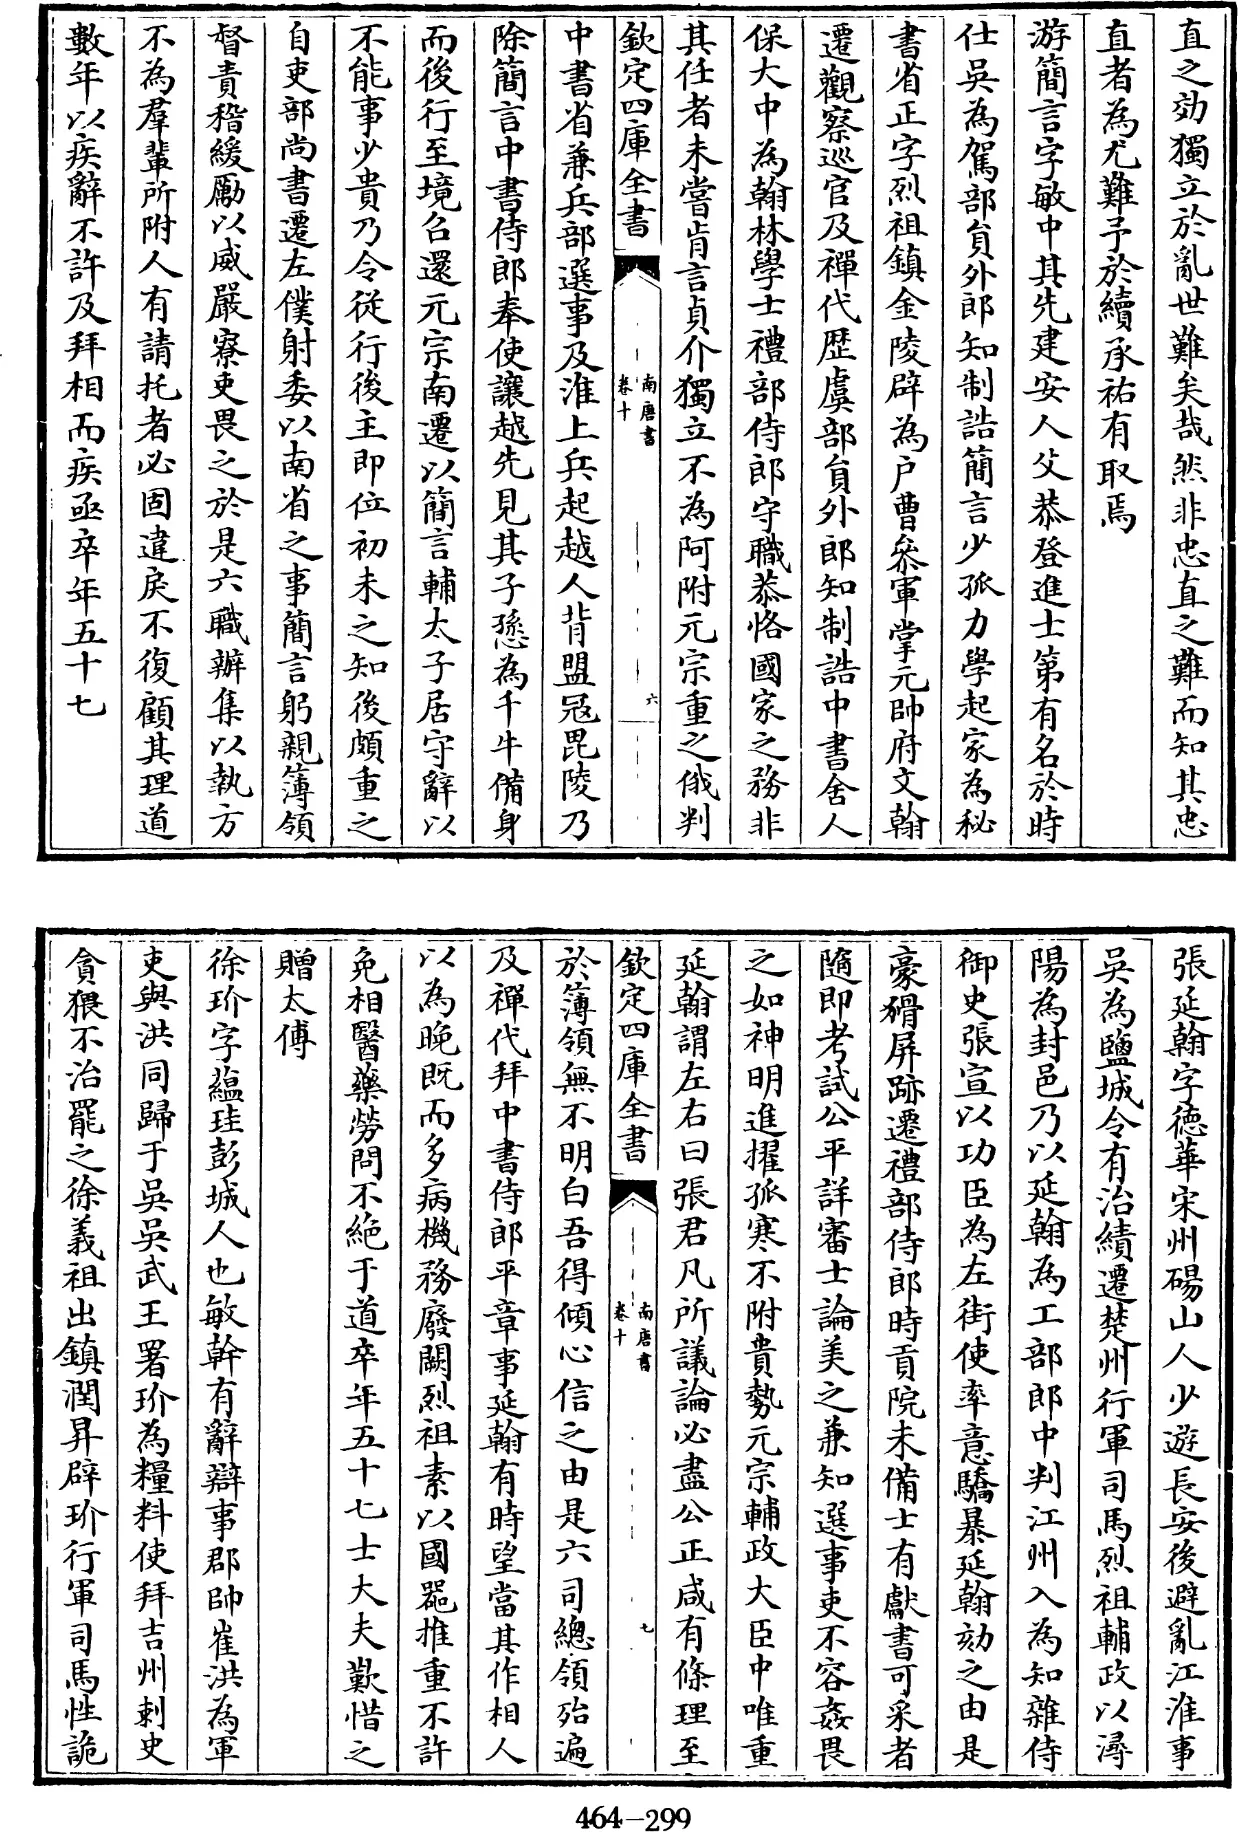 直之効獨立於亂世難矣哉然非忠直之難而知其忠
直者為尤難予於續承祐有取焉
游簡言字敏中其先建安人父恭登進士第有名於時
仕吳為駕部員外郎知制誥簡言少孤力學起家為秘
書省正字烈祖鎮金陵辟為户曹叅軍掌元帥府文翰
遷觀察巡官及禪代歴虞部員外郎知制誥中書舍人
保大中為翰林學士禮部侍郎守職恭恪國家之務非
其任者未嘗肯言貞介獨立不為阿附元宗重之俄判
欽定四庫全書
南唐書
卷十
六
中書省兼兵部選事及淮上兵起越人背盟冦毘陵乃
除簡言中書侍郎奉使讓越先見其子懸為千牛備身
而後行至境召還元宗南遷以簡言輔太子居守辭以
不能事少貴乃令從行後主即位初未之知後頗重之
自吏部尚書遷左僕射委以南省之事簡言躬親簿領
督責稽緩勵以威嚴寮吏畏之於是六職辦集以執方
不為羣輩所附人有請托者必固違戾不復顧其理道
數年以疾辭不許及拜相而疾亟卒年五十七
張延翰字德華宋州碭山人少遊長安後避亂江淮事
吳為鹽城令有治績遷楚州行軍司馬烈祖輔政以潯
陽為封邑乃以延翰為工部郎中判江州入為知雜侍
御史張宣以功臣為左街使率意驕暴延翰劾之由是
豪猾屏跡遷禮部侍郎時貢院未備士有獻書可采者
隨即考試公平詳審士論美之兼知選事吏不容姦畏
之如神明進擢孤寒不附貴勢元宗輔政大臣中唯重
延翰謂左右曰張君凡所議論必盡公正咸有條理至
欽定四庫全書
南唐書
卷十
七
於簿領無不明白吾得傾心信之由是六司總領殆遍
及禪代拜中書侍郎平章事延翰有時望當其作相人
以為晚既而多病機務廢闕烈祖素以國器推重不許
免相醫藥勞問不絶于道卒年五十七士大夫歎惜之
贈太傅
徐玠字藴珪彭城人也敏幹有辭辯事郡帥崔洪為軍
吏與洪同歸于吳吳武王署玠為糧料使拜吉州刺史
貪猥不治罷之徐義祖出鎮潤昇辟玠行軍司馬性詭
464-299